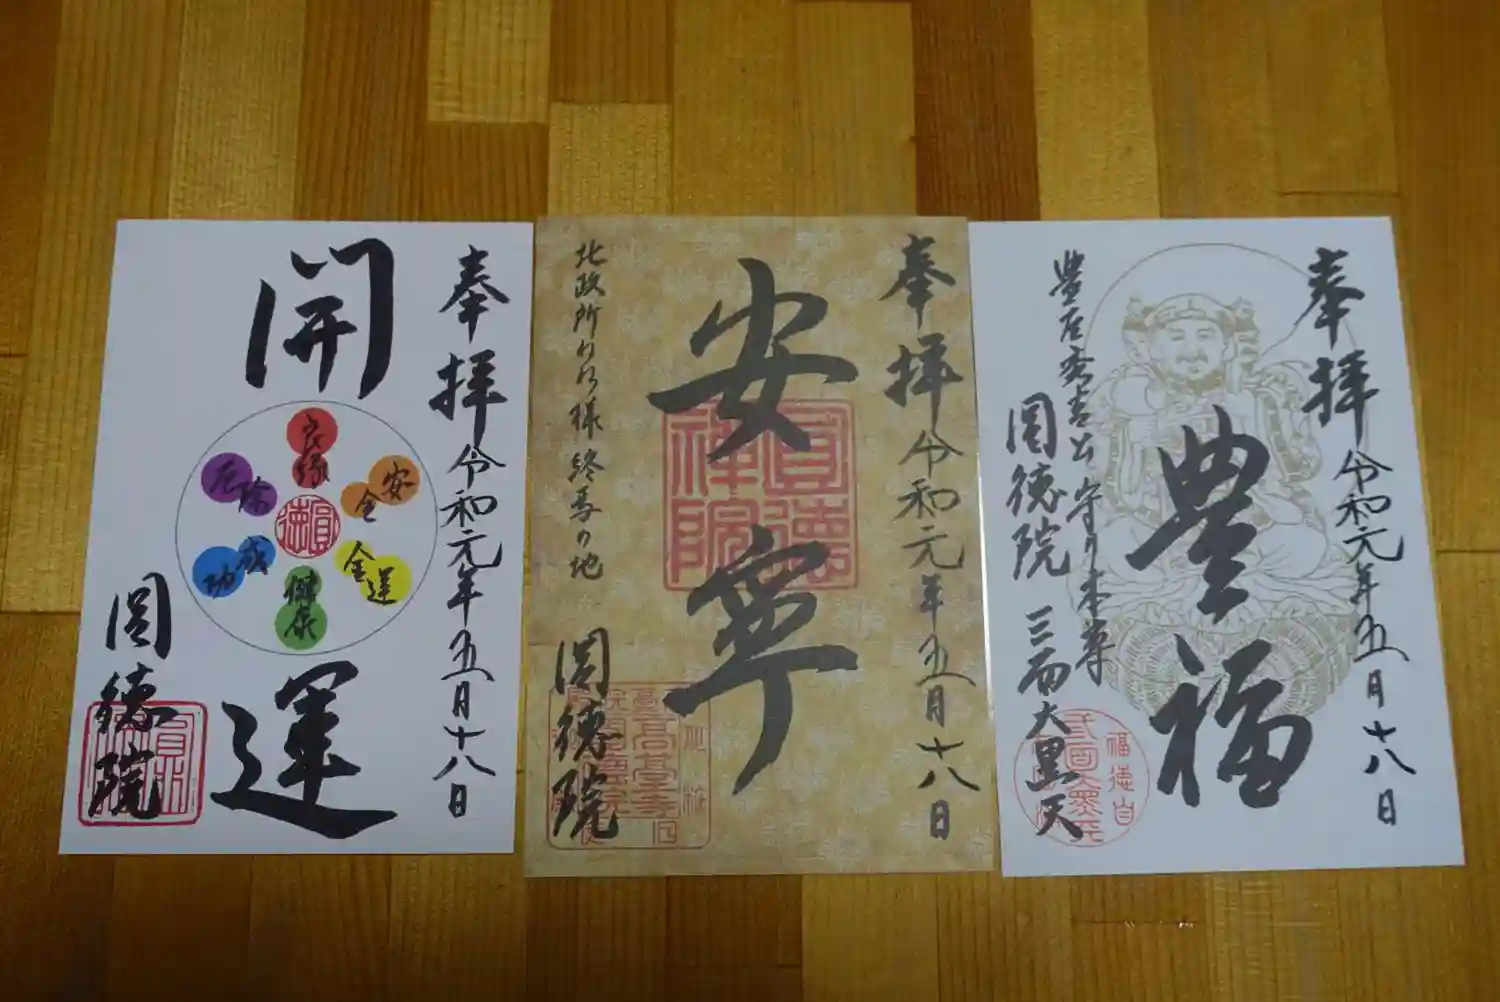 奉拝 令和元年五月十八日
開運
良縁
安全
金運
健康
成功
厄除
圓徳
圓徳院
奉拝 令和元年五月十八日
安寧
圓徳禅院
北政所ねね様 終焉の地
圓徳院
奉拝 令和元年五月十八日
豊福
豊臣秀吉公 守り本尊
圓徳院 三面大黒天